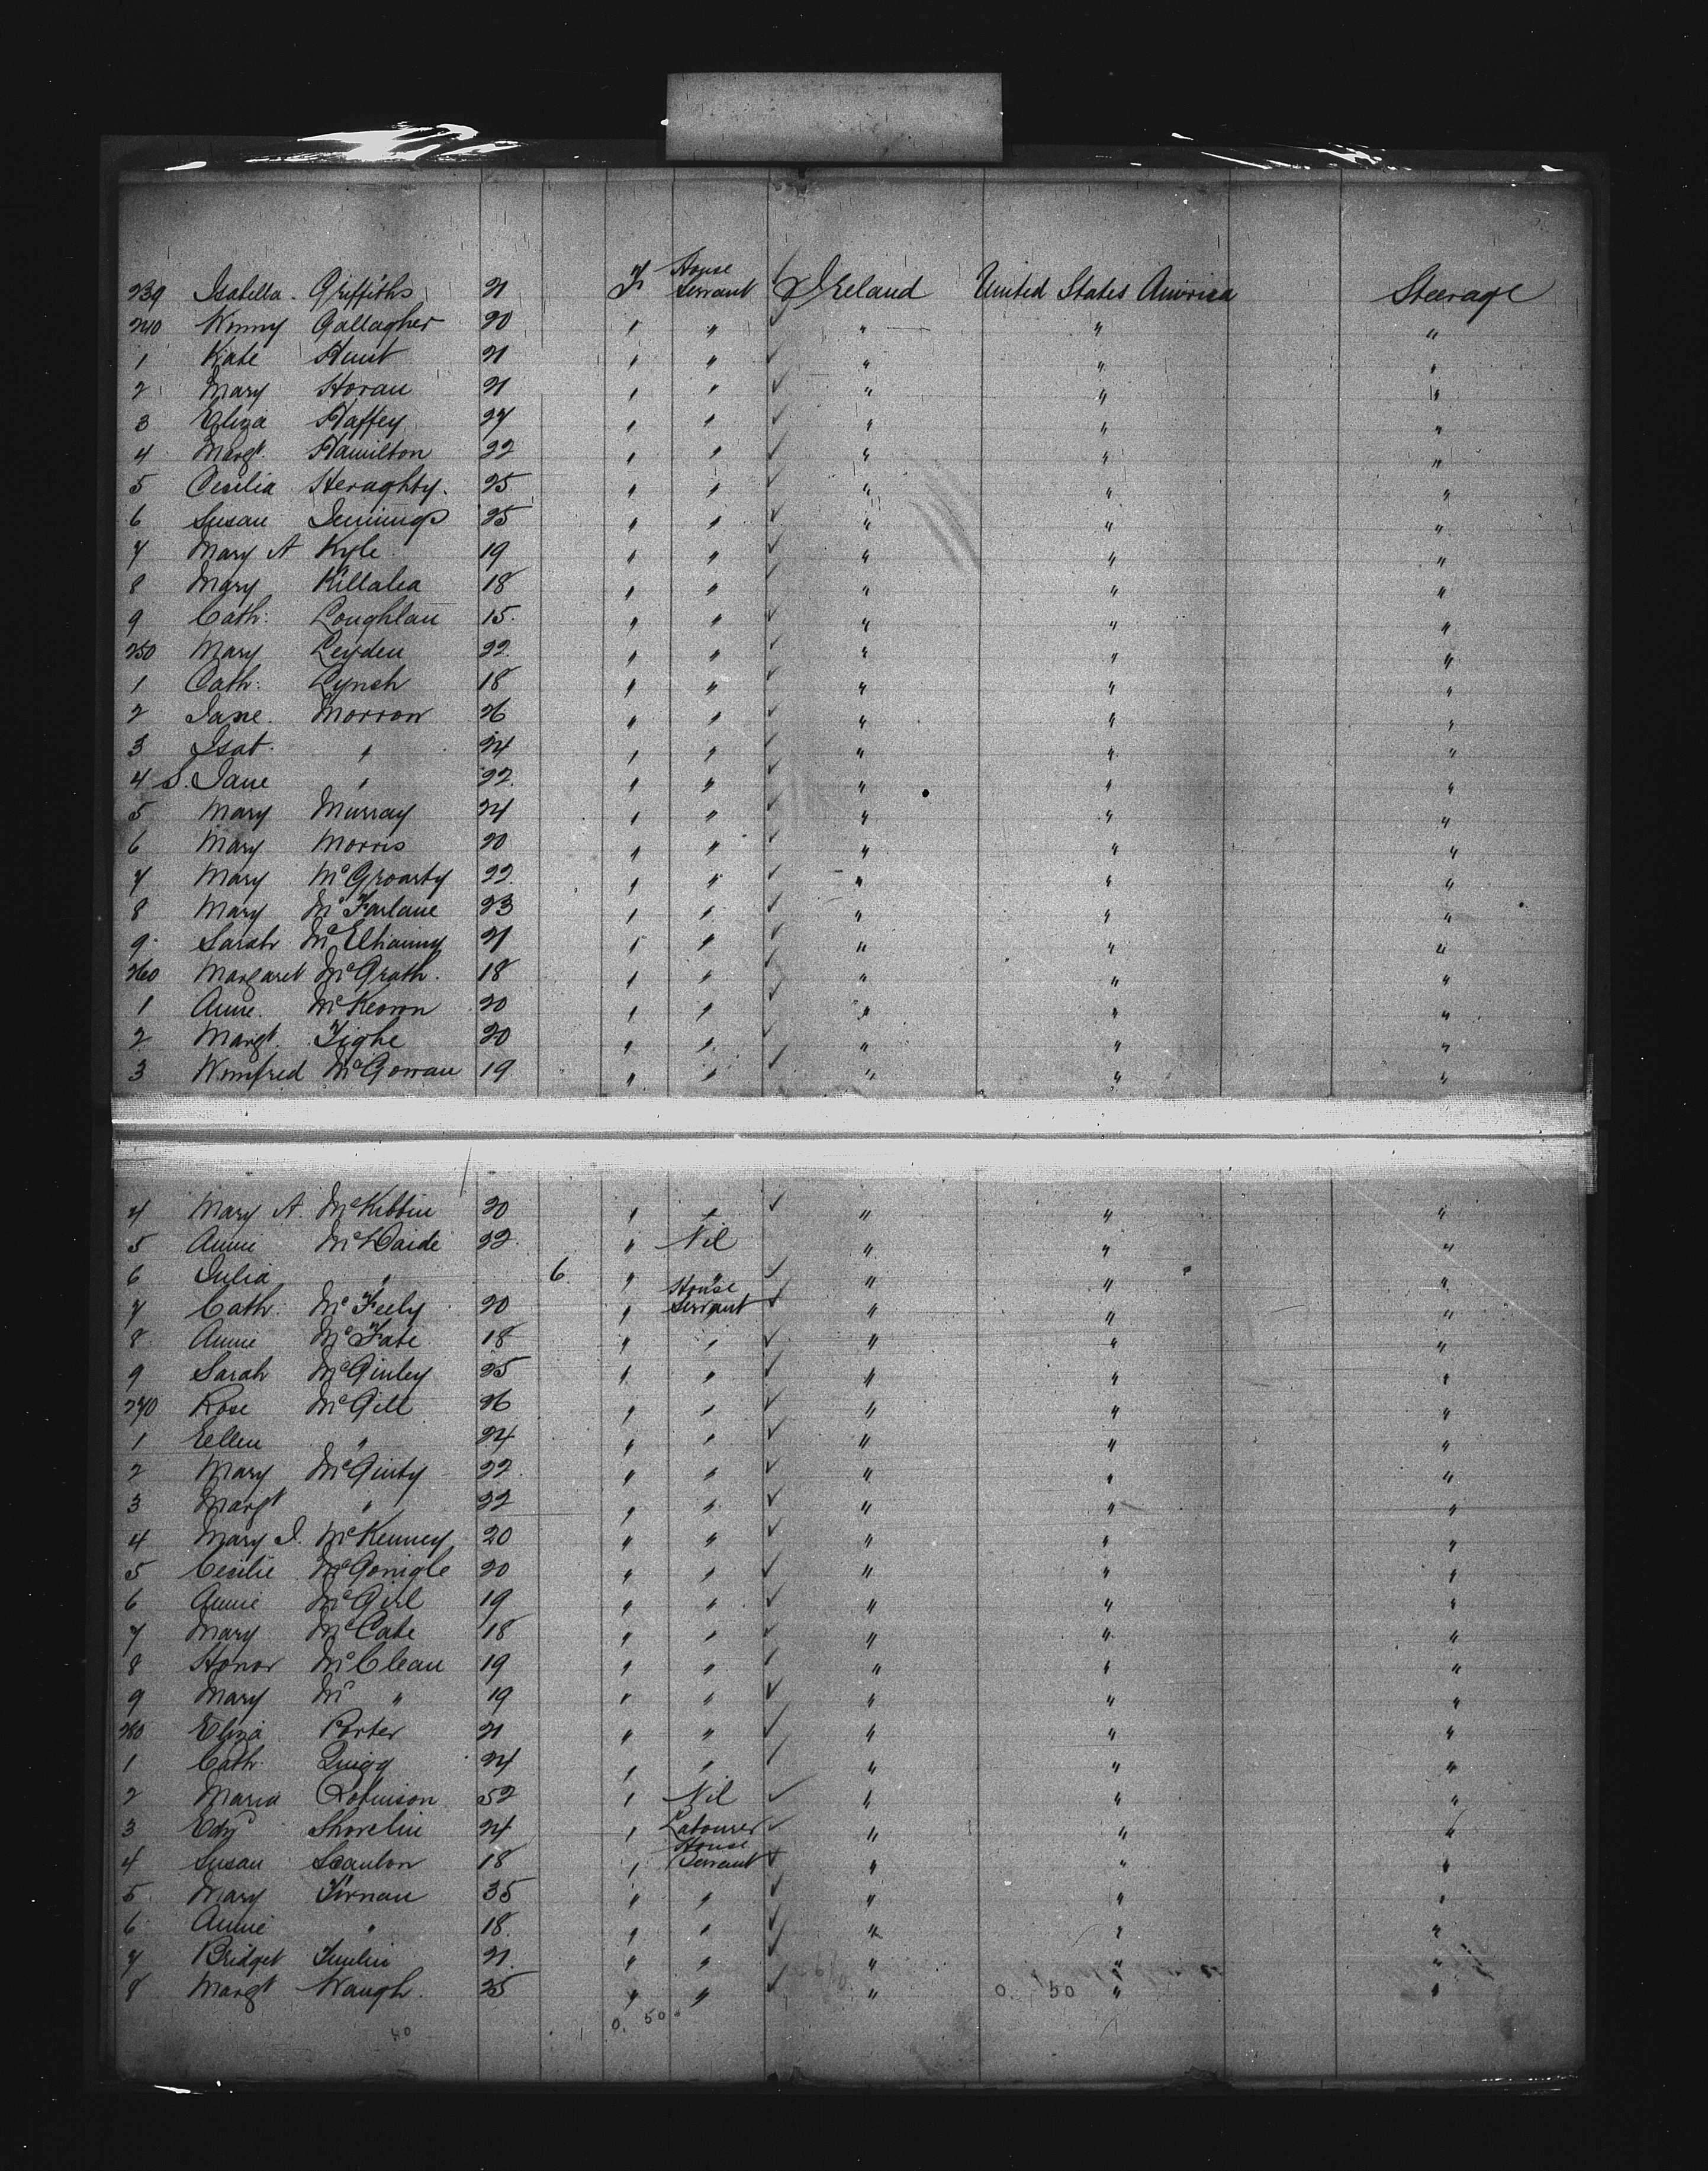 239 Isabella Griffiths 21 F House Servant Ireland United States America Steerage
240 Winny Gallagher 20 " " " " "
1 Kate Hunt 21 " " " " "
2 Mary Horan 21 " " " " "
3 Eliza Haffey 27 " " " " "
4 Margt. Hamilton 22 " " " " "
5 Cecilia Heraghty. 25 " " " " "
6 Susan Jennings 25 " " " " "
7 Mary A Kyle 19 " " " " "
8 Mary Killalea 18 " " " " "
9 Cath: Loughlan 15 " " " " "
250 Mary Leyden 22 " " " " "
1 Cath: Lynch 18 " " " " "
2 Jane Morrow 26 " " " " "
3 Isab. " 24 " " " " "
4 S. Jane " 22 " " " " "
5 Mary Murray 24 " " " " "
6 Mary Morris 20 " " " " "
7 Mary McGroarty 22 " " " " "
8 Mary McFarlane 23 " " " " "
9 Sarah McElhanny 21 " " " " "
260 Margaret McGrath 18 " " " " "
1 Anne McKeown 20 " " " " "
2 Margt. Tighe 20 " " " " "
3 Winnifred McGowan 19 " " " " "
4 Mary A. McKibbin 20 " " " " "
5 Annie 22 " Nil " " "
6 Julia " 6 " " " " "
7 Cath: McFeely 20 " House Servant " " "
8 Annie McFate 18 " " " " "
9 Sarah McGinley 25 " " " " "
270 Rose McGill 26 " " " " "
1 Ellen " 24 " " " " "
2 Mary McGinty 22 " " " " "
3 Margt " 22 " " " " "
4 Mary J. McKenney 20 " " " " "
5 Cecilie McGonigle 20 " " " " "
6 Annie McGirl 19 " " " " "
7 Mary McCabe 18 " " " " "
8 Honor McClean 19 " " " " "
9 Mary Mc " 19 " " " " "
280 Eliza Porter 21 " " " " "
1 Cath: Quigg 24 " " " " "
2 Maria Robinson 52 " Nil " " "
3 24 " Labourer " " "
4 Susan Scanlon 18 " House Servant " " "
5 Mary 35 " " " " "
6 Annie " 18 " " " " "
7 Bridget 21 " " " " "
8 Margt Waugh 25 " " " " "
0. 50
0. 50